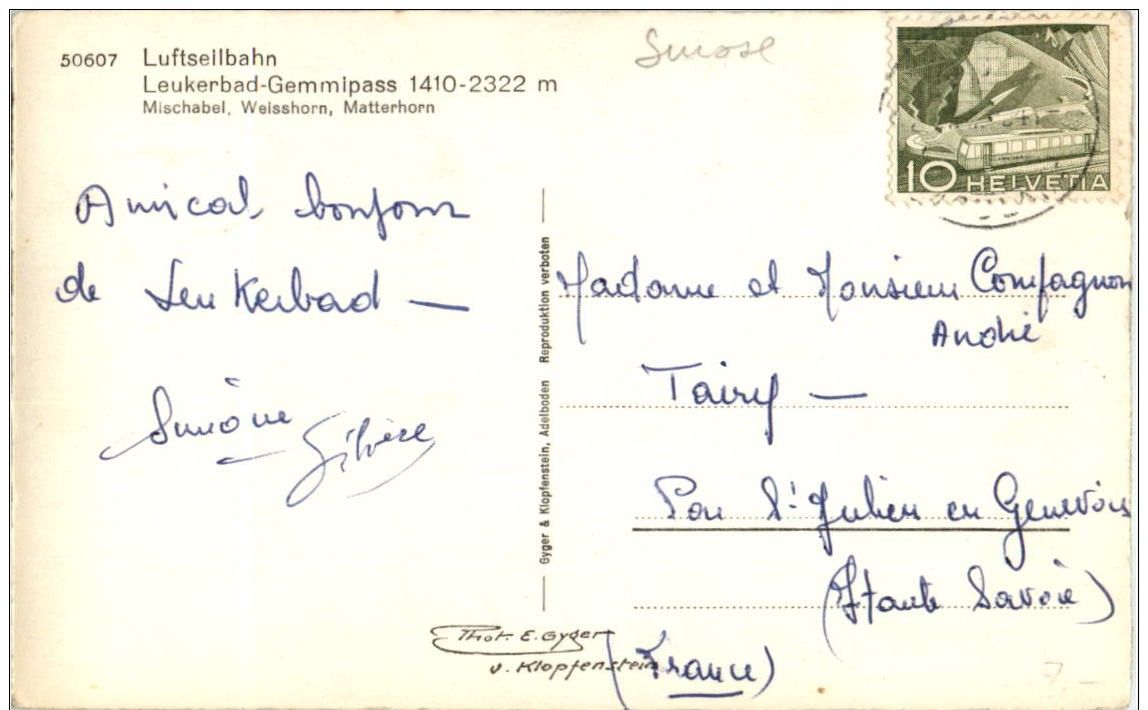 50607 Luftseilbahn
Leukerbad-Gemmipass 1410-2322 m
Mischabel, Weisshorn, Matterhorn
10 HELVETIA
Amical bonjour
de Leukerbad —
Simone
Gyger & Klopfenstein, Adelboden Reproduktion verboten
Madame et Monsieur Compagnon
André
Tairy —
Par St Julien en Genevois
(Haute Savoie)
(France)
Phot. E. Gyger
u. Klopfenstein
7,-